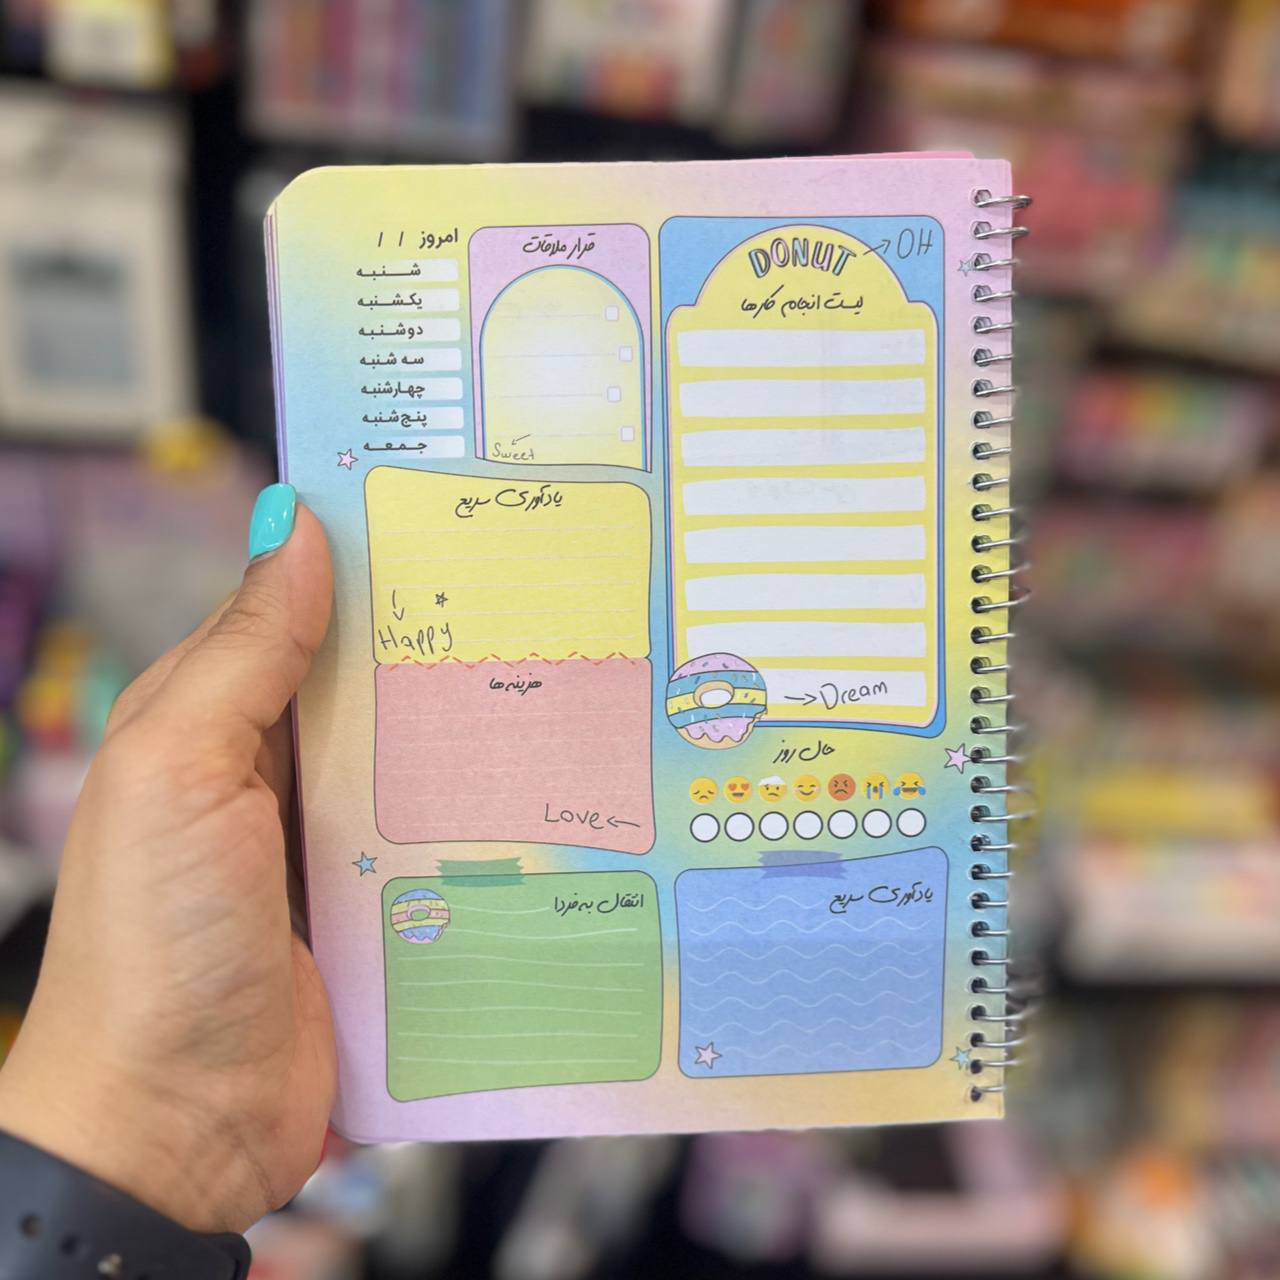 DONUT
OH
لیست انجام کارها
Dream
قرار ملاقات
Sweet
امروز / /
شنبه
یکشنبه
دوشنبه
سه شنبه
چهارشنبه
پنج‌شنبه
جمعه
یادآوری سریع
Happy
هزینه ها
Love
حال روز
یادآوری سریع
انتقال به فردا